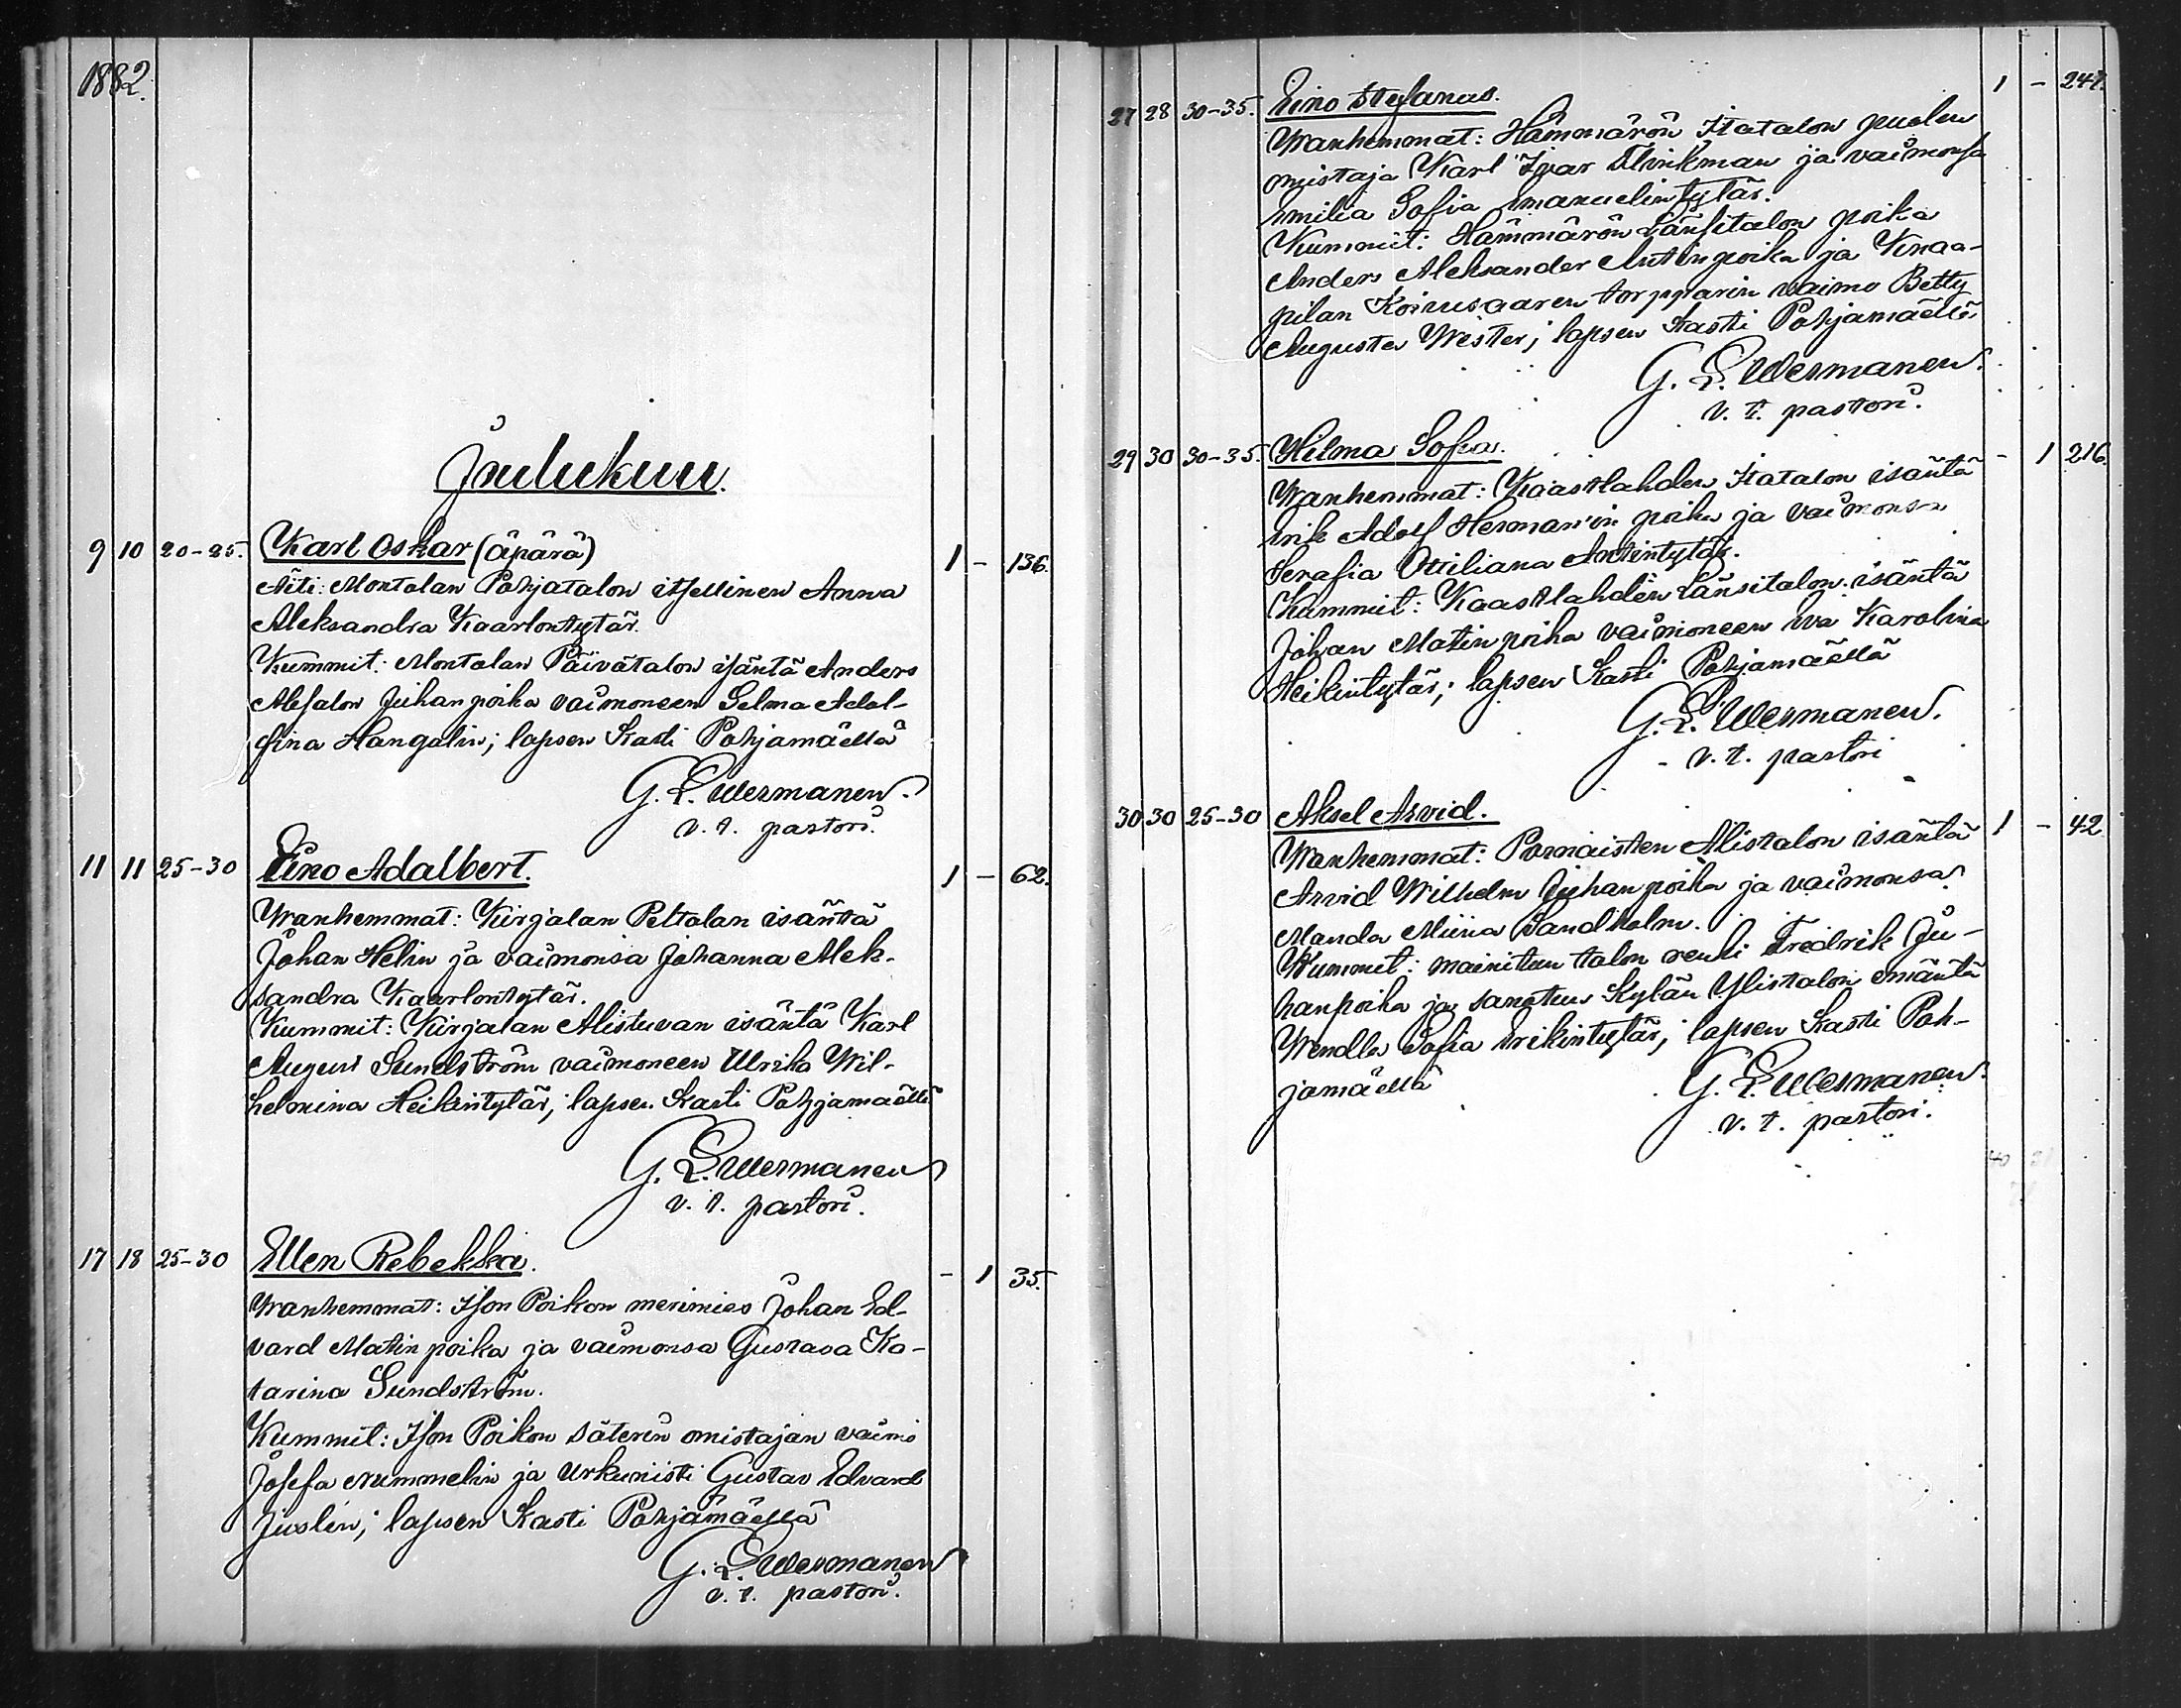 1882.
Joulukuu.
9 10 20-25. Karl Oskar (äpärä) 1 - 136.
Äiti: Montolan Pohjatalon itsellinen Anna
Aleksandra Kaarlontytär.
Kummit: Montolan Päivätalon isäntä Anders
Absalon Juhanpoika vaimoneen Selma Adol-
fina Hangelin; lapsen kasti Pohjamäellä
G. L. Wermanen.
v. t. pastori.
11 11 25-30 Eino Adalbert. 1 - 62.
Wanhemmat: Kirjalan Peltolan isäntä
Johan Helin ja vaimonsa Johanna Alek-
sandra Kaarlontytär.
Kummit: Kirjalan Alistuvan isäntä Karl
August Sundström vaimoneen Ulrika Wil-
helmina Heikintytär; lapsen kasti Pohjamäellä
G. L. Wermanen
v. t. pastori.
17 18 25-30 Ellen Rebekka. - 1 35.
Wanhemmat: Ison Poikon merimies Johan Ed-
vard Matinpoika ja vaimonsa Gustava Ka-
tarina Sundström.
Kummit: Ison Poikon säterin omistajan vaimo
Josefa Nummelin ja Urkunisti Gustav Edvard
Juslén; lapsen kasti Pohjamäellä
G. L. Wermanen
v. t. pastori.
27 28 30-35. Eino Stefanus. 1 - 247.
Wanhemmat: Hämmärön Itatalon puolen
omistaja Karl Ivar Flinkman ja vaimonsa
Emilia Sofia Emanuelintytär.
Kummit: Hämmärön Länsitalon poika
Anders Aleksander Antinpoika ja Knaa-
pilan Koivusaaren torpparin vaimo Betty
Augusta Wester; lapsen kasti Pohjamäellä
G. L. Wermanen.
v. t. pastori.
29 30 30-35. Hilma Sofia. - 1 216.
Wanhemmat: Kaastlahden Itatalon isäntä
Erik Adolf Herman'in poika ja vaimonsa
Serafia Ottiliana Antintytär.
Kummit: Kaastlahden Länsitalon isäntä
Johan Matinpoika vaimoneen Eva Karolina
Heikintytär; lapsen kasti Pohjamäellä
G. L. Wermanen.
v. t. pastori
30 30 25-30 Aksel Arvid. 1 - 42
Wanhemmat: Pornaisten Alistalon isäntä
Arvid Wilhelm Juhanpoika ja vaimonsa
Manda Miina Sandholm.
Kummit: mainitun talon renki Fredrik Ju-
hanpoika ja sanotun kylän Ylistalon emäntä
Wendla Sofia Erikintytär; lapsen kasti Poh-
jamäellä
G. L. Wermanen.
v. t. pastori.
40